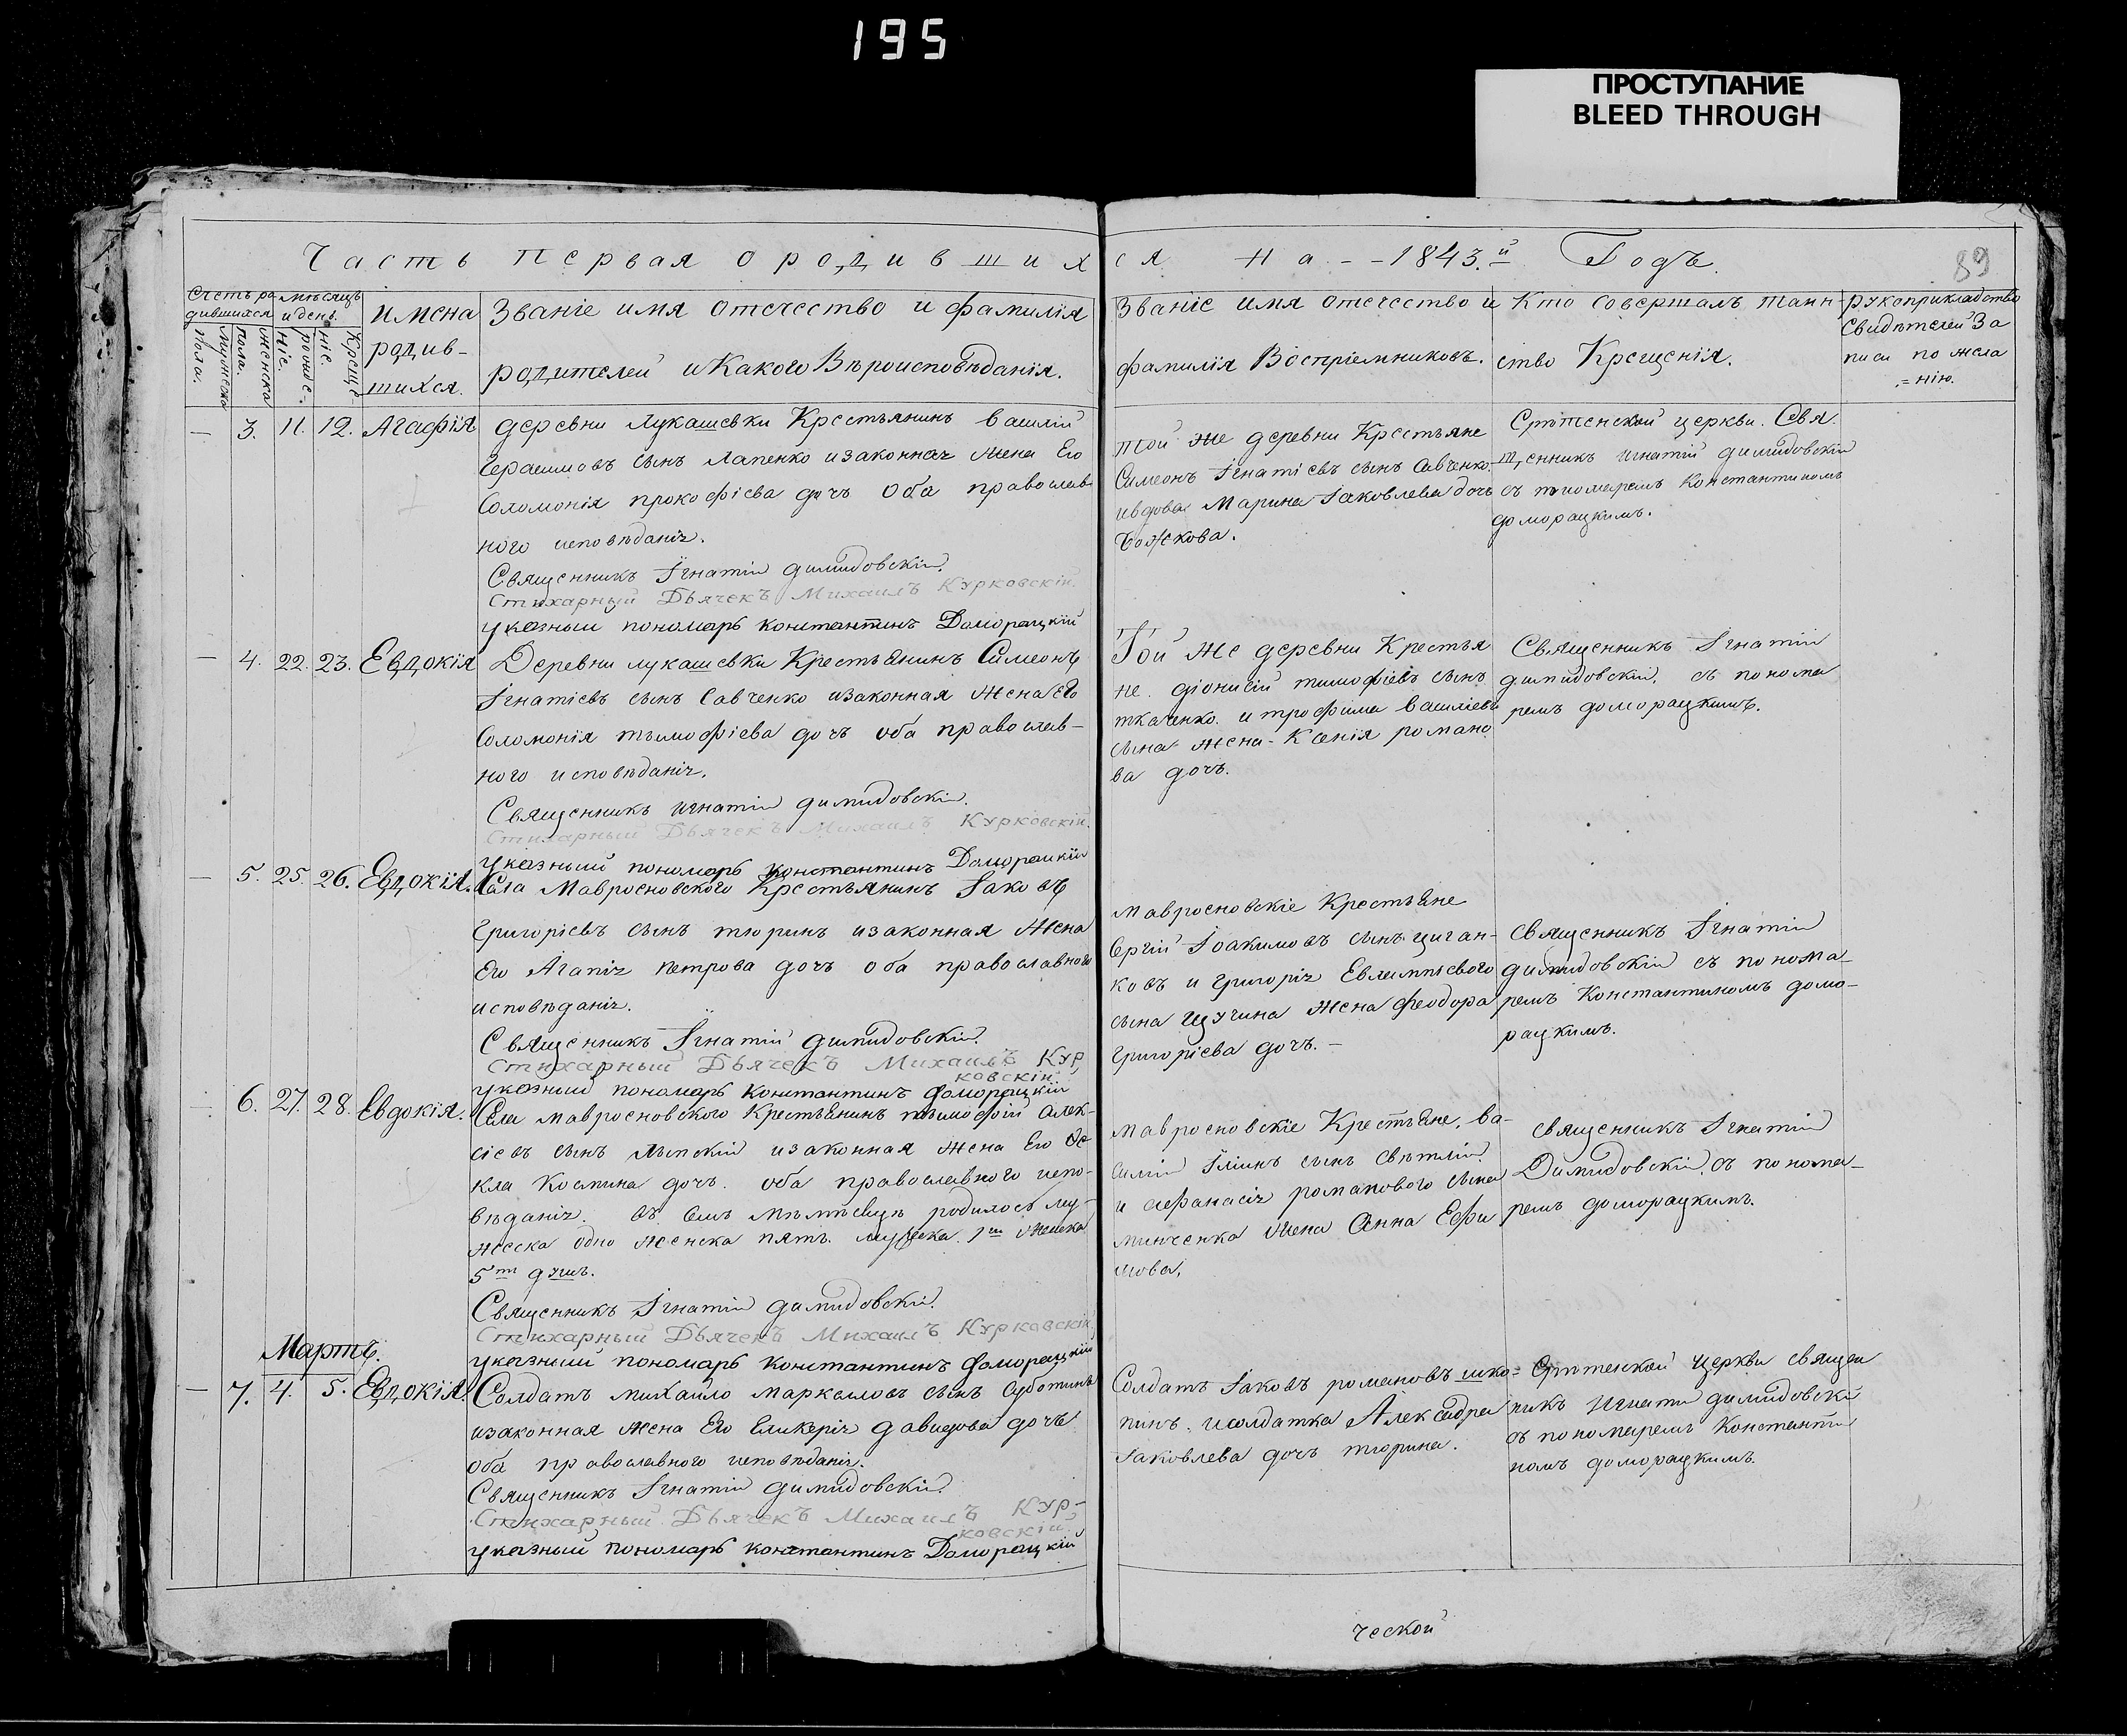 195
ПРОСТУПАНИЕ
BLEED THROUGH
Часть первая о родившихся на - - 1843.й Годъ.
89
Счетъ ро
дившихся
мѣсяцъ
и день.
имена
родив-
шихся.
Званіе имя отечество и фамилія
родителей и Какого Вѣроисповѣданія.
Званіе имя отечество и
фамилія Воспріемниковъ.
Кто совершалъ таин-
ство Крещенія.
рукоприкладство
Свидѣтелей За
писи по жела
=нію.
мужеска
пола.
женска
пола.
рожде-
ніе.
Креще
ніе.
— 3. 11. 12. Агафія
деревни Лукашевки Крестьянинъ василій
Герасимовъ сынъ Лапенко изаконная жена Его
Соломонія прокофіева дочь Оба православ
ного исповѣданія.
Священникъ Ігнатій димидовскій.
Стихарный Дьячекъ Михаилъ Курковскій.
указный пономарь константинъ Доморацкій
той же деревни Крестьяне
Симеонъ Ігнатіевъ сынъ Савченко.
ивдова Марина Іаковлева дочь
Божкова.
Срѣтенской церкви. Свя.
щенникъ игнатій димидовскій
съ пономаремъ константиномъ
доморацкимъ.
— 4. 22. 23. Евдокія
Деревни лукашевки Крестьянинъ Симеонъ
Ігнатіевъ сынъ Савченко изаконная жена Его
Соломонія тымофіева дочь оба православ-
ного исповѣданія.
Священникъ игнатій димидовскій.
Стихарный Дьячекъ Михаилъ Курковскій.
Указный пономарь константинъ Доморацкій
Той же деревни Крестья
не. діонисій тимофіевъ сынъ
ткаченко. и трофима василіева
сына жена Ксенія романо
ва дочь.
Священникъ Ігнатій
димидовскій. съ понома
ремъ доморацкимъ.
— 5. 25. 26. Евдокія.
Села Мавросновского Крестьянинъ Іаковъ
Григоріевъ сынъ тюринъ изаконная жена
Его Агапія петрова дочь оба православного
исповѣданія.
Священникъ Ігнатій димидовскій.
Стихарный Дьячекъ Михаилъ Кур
ковскій.
указный пономарь константинъ доморацкій
мавросновскіе Крестьяне
Сергій Іоакимовъ сынъ циган-
ковъ и григорія Евлампіевого
сына щучина жена феодора
григоріева дочь. —
священникъ Ігнатій
димидовскій съ понома-
ремъ Константиномъ домо-
рацкимъ.
6. 27. 28. Евдокія.
Села мавросновского Крестьянинъ тымофій алек-
сіевъ сынъ изаконная жена Его Ѳе
кла Космина дочь. оба православного испо-
вѣданія. въ семъ мѣсяцѣ родилось му-
жеска одно женска пять. мужеска. 1 женска
5 душъ.
Священникъ Ігнатій димидовскій.
Стихарный Дьячекъ Михаилъ Курковскій
указный пономарь константинъ доморацкій
мавросновскіе Крестьяне. ва-
силій Іліинъ сынъ
и афанасія романового сына
минченка жена Анна Ефи
мова.
священникъ Ігнатій
Димидовскій. съ понома-
ремъ доморацкимъ.
Мартъ.
— 7. 4. 5. Евдокія
Солдатъ михайло маркеловъ сынъ Суботинъ
изаконная жена Его Гликерія давидова дочь
оба православного исповѣданія.
Священникъ Ігнатій димидовскій.
Стихарный Дьячекъ Михаилъ Кур-
ковскій.
указный пономарь константинъ Доморацкій
Солдатъ Іаковъ романовъ шко-
пинъ. исолдатка Александра
Іаковлева дочь тюрина.
Срѣтенской церкви священ
никъ Игнати димидовски
съ пономаремъ Константи
номъ доморацкимъ.
ческой